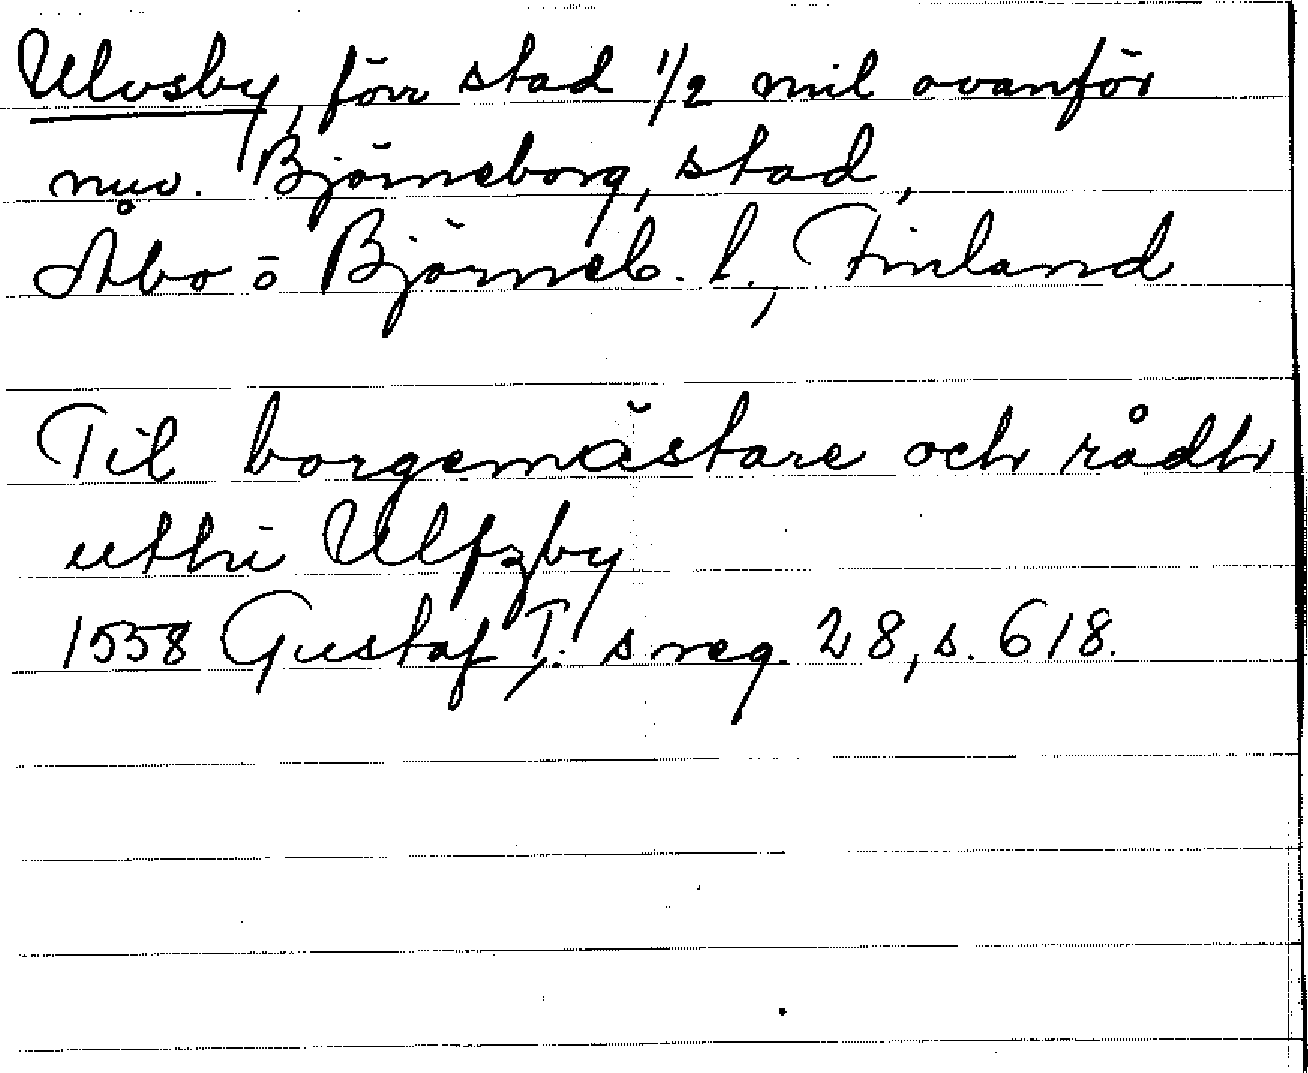 Ulvsby, förr stad 1/2 mil ovanför
nuv. Björneborg, stad,
Åbo o Björneb. l., Finland
Til borgemästare och rådh
uthi Ulfzby
1558 Gustaf I:s reg. 28, s. 618.